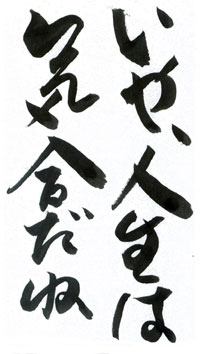 いや、人生は
気合だね